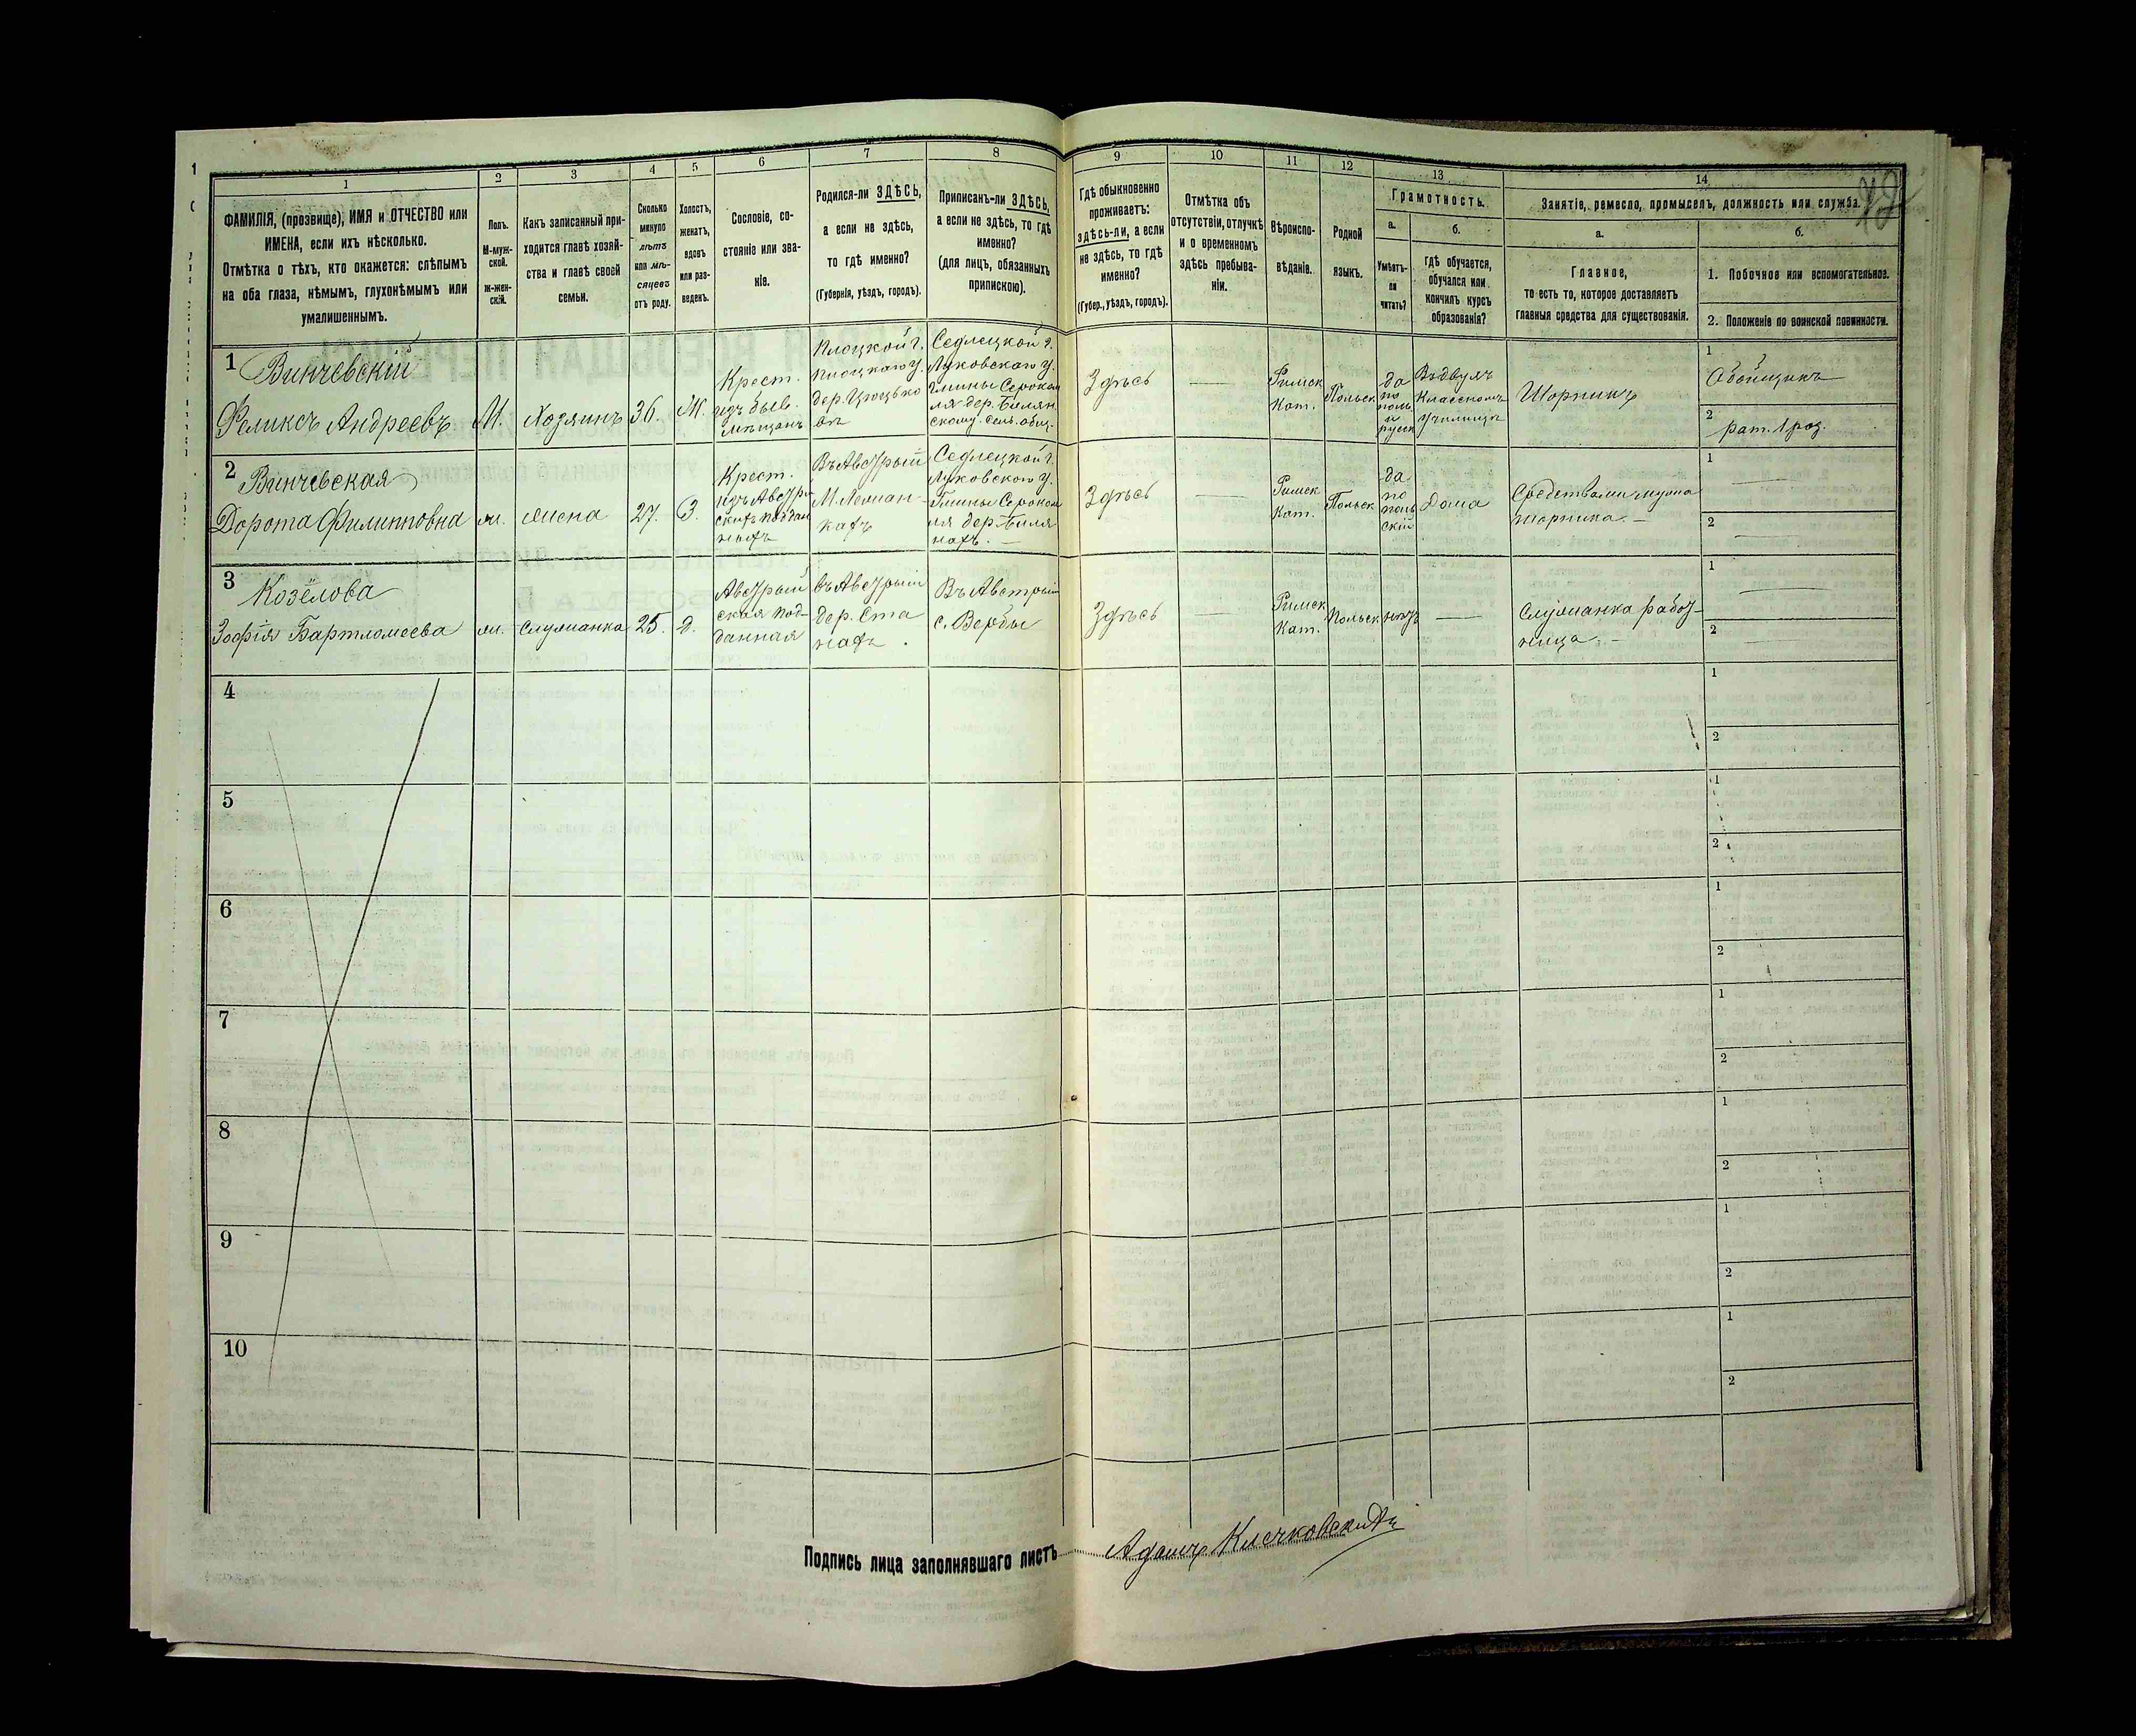 1
2
3
4
5
6
7
8
9
10
11
12
13
14
ФАМИЛІЯ, (прозвище), ИМЯ и ОТЧЕСТВО или
ИМЕНА, если ихъ нѣсколько.
Отмѣтка о тѣхъ, кто окажется: слѣпымъ
на оба глаза, нѣмымъ, глухонѣмымъ или
умалишеннымъ.
Полъ.
М-муж-
ской.
Ж-жен-
скій.
Какъ записанный при-
ходится главѣ хозяй-
ства и главѣ своей
семьи.
Сколько
минуло
лѣтъ
или мѣ-
сяцевъ
отъ роду.
Холостъ,
женатъ,
вдовъ
или раз-
веденъ.
Сословіе, со-
стояніе или зва-
ніе.
Родился-ли ЗДѢСЬ,
а если не здѣсь,
то гдѣ именно?
(Губернія, уѣздъ, городъ).
Приписанъ-ли ЗДѢСЬ,
а если не здѣсь, то гдѣ
именно?
(для лицъ, обязанныхъ
припискою).
Гдѣ обыкновенно
проживаетъ:
здѣсь-ли, а если
не здѣсь, то гдѣ
именно?
(Губер., уѣздъ, городъ).
Отмѣтка объ
отсутствіи, отлучкѣ
и о временномъ
здѣсь пребыва-
ніи.
Вѣроиспо-
вѣданіе.
Родной
языкъ.
Грамотность.
а.
Умѣетъ-
ли
читать?
б.
гдѣ обучается,
обучался или
кончилъ курсъ
образованія?
Занятіе, ремесло, промыселъ, должность или служба.
а.
Главное,
то есть то, которое доставляетъ
главныя средства для существованія.
б.
1. Побочное или вспомогательное.
2. Положеніе по воинской повинности.
1
Винчевскій
Феликсъ Андреевъ
М.
Хозяинъ
36.
Ж.
Крест.
изъ быв.
мѣщанъ
Плоцкой г.
Плоцкаго у.
дер.
Седлецкой г.
Луковскаго у.
Гмины Сероком
ля дер. Билян
скому. сел. общ.
Здѣсь
Римск
Кат.
Польск
да
по
поль
и
русск
Въ двухъ
классномъ
училищѣ
Шорникъ
1
Обойщикъ
2
рат. 1 раз.
2
Винчевская
Дорота Филипповна
ж.
жена
27.
З.
Крест.
изъ Австрій
скихъ поддан
ныхъ
Въ Австріи
Седлецкой г.
Луковского у.
Гмины Сероком
ля дер. Биля
нахъ.
Здѣсь
Римск
Кат.
Польск
да
по
поль
скій
дома
Средствами мужа
шорника.
1
2
3
Козёлова
Зофія Бартломеева
ж.
служанка
25.
д.
Австрій
ская под-
данная
въ Австріи
дер. Ста
нахъ.
Въ Австріи
с. Вербы
Здѣсь
Римск
Кат.
Польск
нѣтъ
служанка работ-
ница.
1
2
4
1
2
5
1
2
6
1
2
7
1
2
8
1
2
9
1
2
10
1
2
Подпись лица заполнявшаго листъ
Адамъ Клечковскій